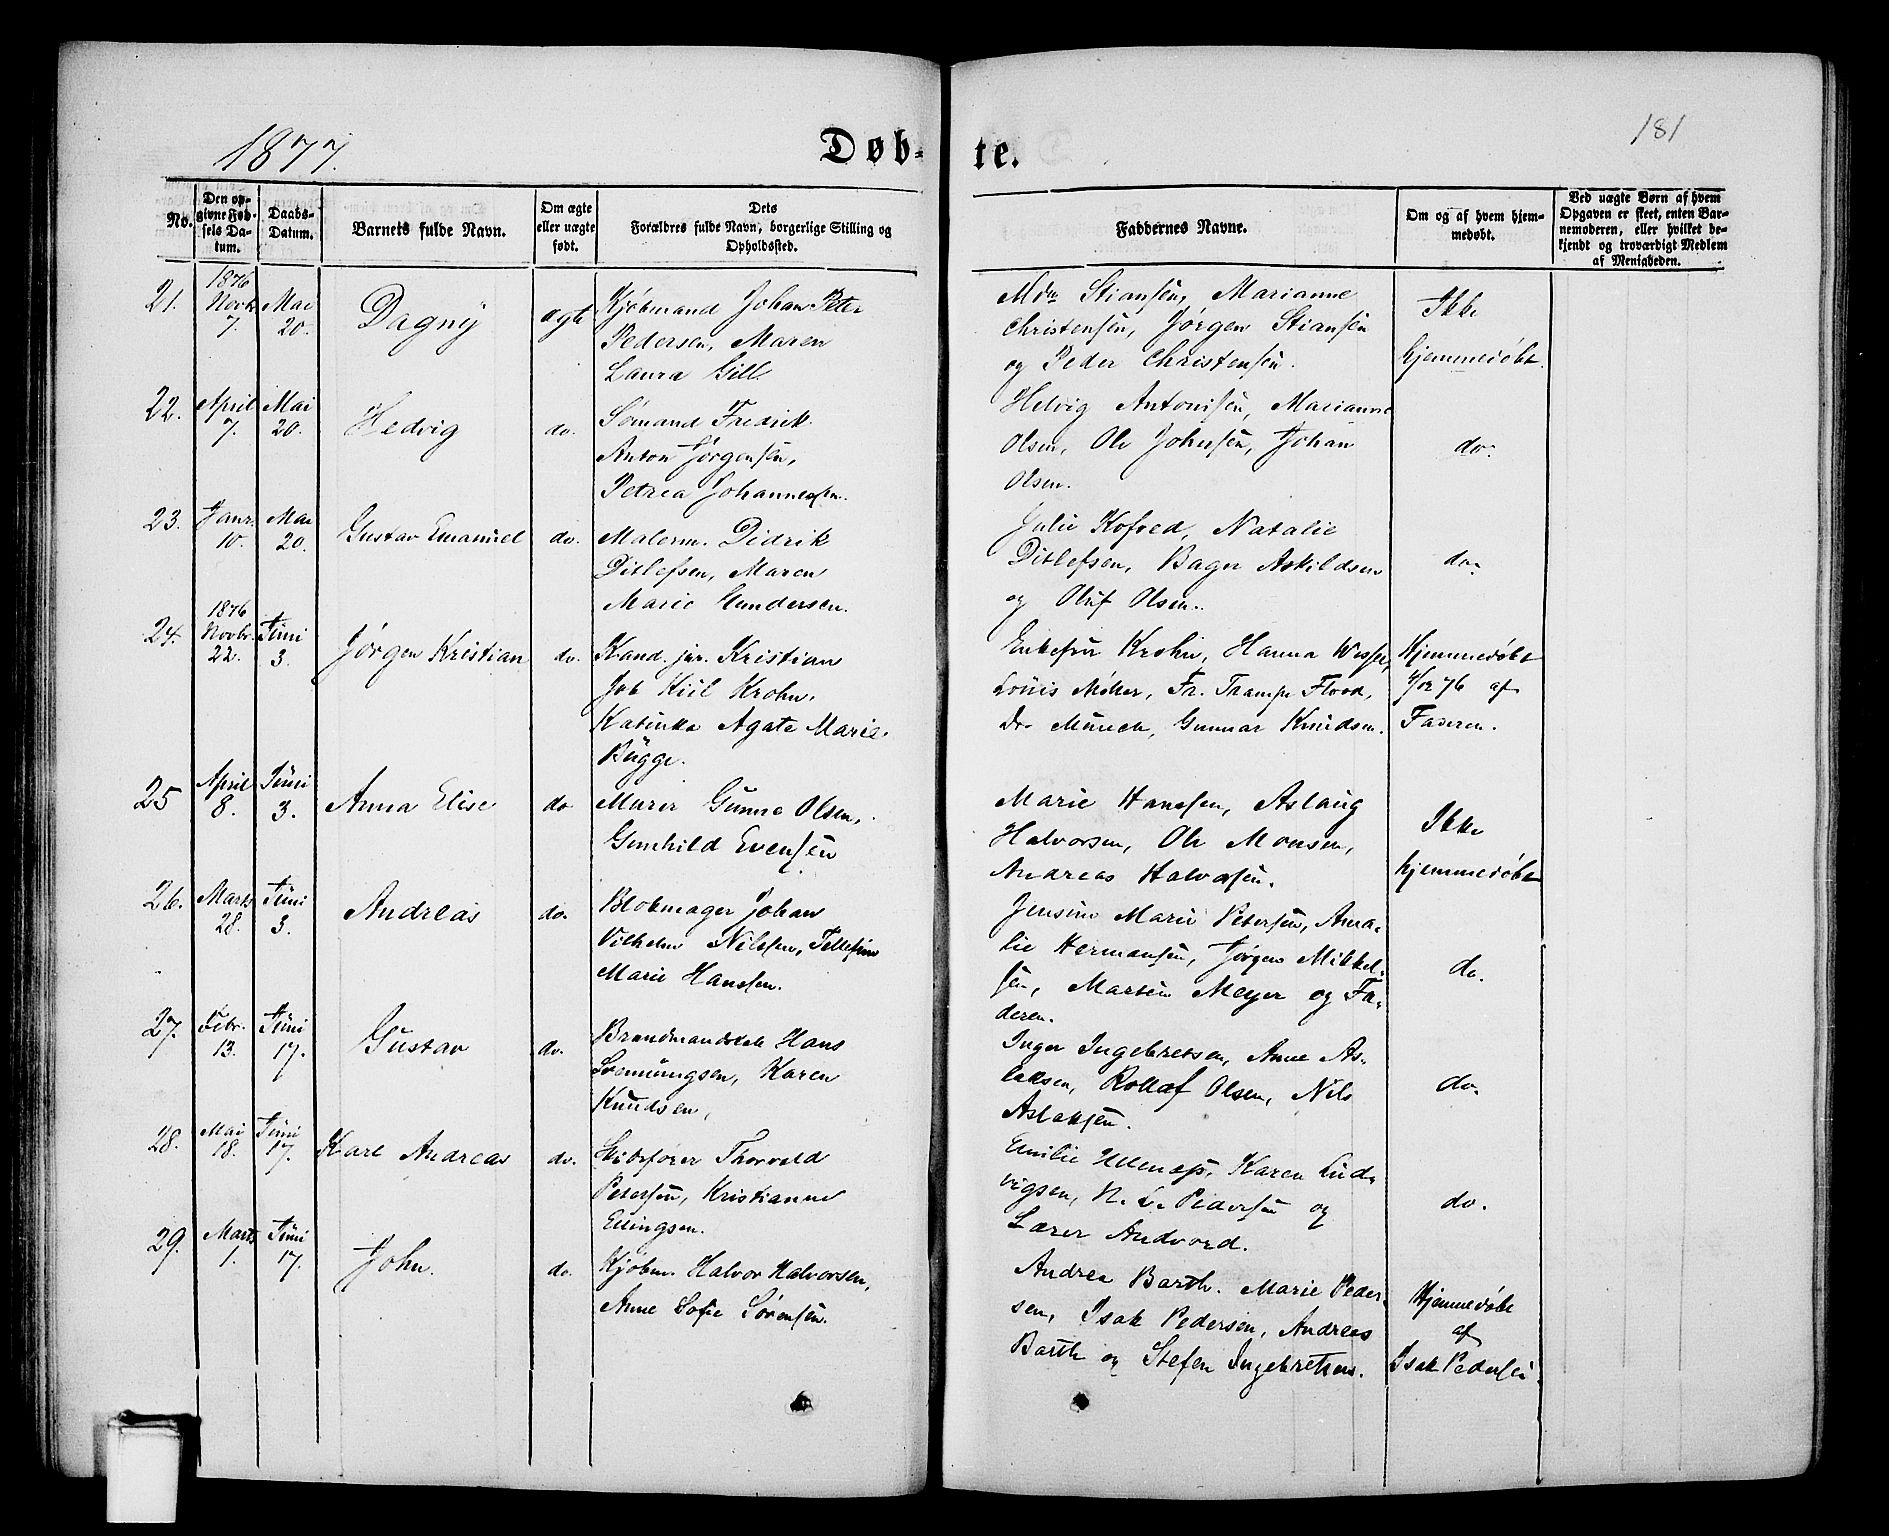 1877.
Døb-
te.
181
No.
Den op-
givne Fød-
sels Da-
tum.
Daabs-
Datum.
Barnets fulde Navn.
Om ægte
eller uægte
født.
Dets
Forældres fulde Navn, borgerlige Stilling og
Opholdssted.
Faddernes Navne.
Om og af hvem hjem-
medøbt.
Ved uægte Børn af hvem
Opgaven er skeet, enten Bar-
nemoderen, eller hvilket be-
kjendt og troværdigt Medlem
af Menigheden.
21.
1876
Novb.
7.
Mai
20.
Dagny
ægte
Kjøbmand Johan Peter
Pedersen, Maren
Laura Gill.
Mdm Stiansen, Marianne
Christensen, Jørgen Stiansen
og Peder Christensen.
Ikke
hjemmedøbt.
22.
April
7.
Mai
20.
Hedvig
do.
Sømand Fredrik
Anton Jørgensen,
Petrea Johannesen.
Helvig Antonisen, Marianne
Olsen, Ole Johnsen, Johan
Olsen.
do.
23.
Janr.
10.
Mai
20.
Gustav Emanuel
do.
Malerm. Didrik
Ditlefsen, Maren
Marie Gundersen.
Julie Kofoed, Natalie
Ditlefsen, Bager Askildsen
og Oluf Olsen.
do.
24.
1876
Novbr.
22.
Juni
3.
Jørgen Kristian
do.
Kand. jur. Kristian
Job Kiil Krohn,
Katinka Agate Marie
Bugge.
Enkefru Krohn, Hanna
Louis Møller, Fr. Trampe Flood,
Dr. Munch, Gunnar Knudsen.
Hjemmedøbt
76 af
Faderen.
25
April
8.
Juni
3.
Anna Elise
do
Murer Gunne Olsen,
Gunhild Evensen
Marie Hansen, Aslaug
Halvorsen, Ole Monsen,
Andreas Halvorsen.
Ikke
hjemmedøbt
26.
Marts
28.
Juni
3.
Andreas
do.
Blokmager Johan
Vilhelm Nilssen, Tellefine
Marie Hanssen.
Jensine Marie Petersen, Ama-
lie Hermansen, Jørgen Mikkel-
sen, Martin Meyer og Fa-
deren.
do.
27.
Febr.
13.
Juni
17.
Gustav
do.
Brandmandskab Hans
Svenungsen, Karen
Knudsen,
Inger Ingebretsen, Anne As-
laksen, Rollaf Olsen, Nils
Aslaksen.
do.
28.
Mai
18.
Juni
17.
Karl Andreas
do.
Skibsfører Thorvald
Petersen, Kristianne
Ellingsen.
Emilie Karen Lud-
vigsen, N. L. Pedersen og
Lærer Andvord.
do.
29.
Marts
1.
Juni
17.
John.
do.
Kjøbm. Halvor Halvorsen,
Anne Sofie Sørensen.
Andrea Barth. Marie Peder-
sen, Isak Pedersen, Andreas
Barth og Stefen Ingebretsen.
Hjemmedøbt
af
Isak Pedersen.